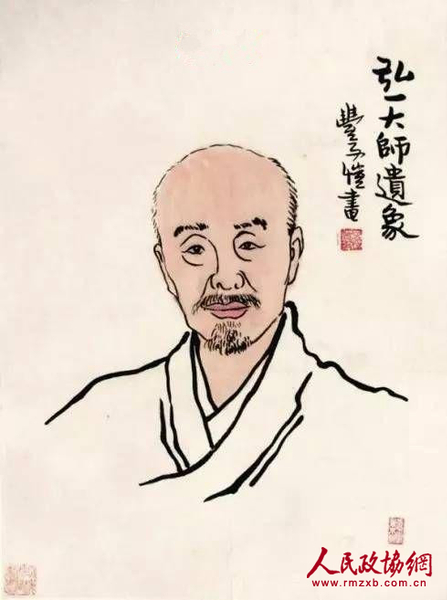 弘一大師遺象
豐子愷畫
人民政协網
www.rmzxb.com.cn